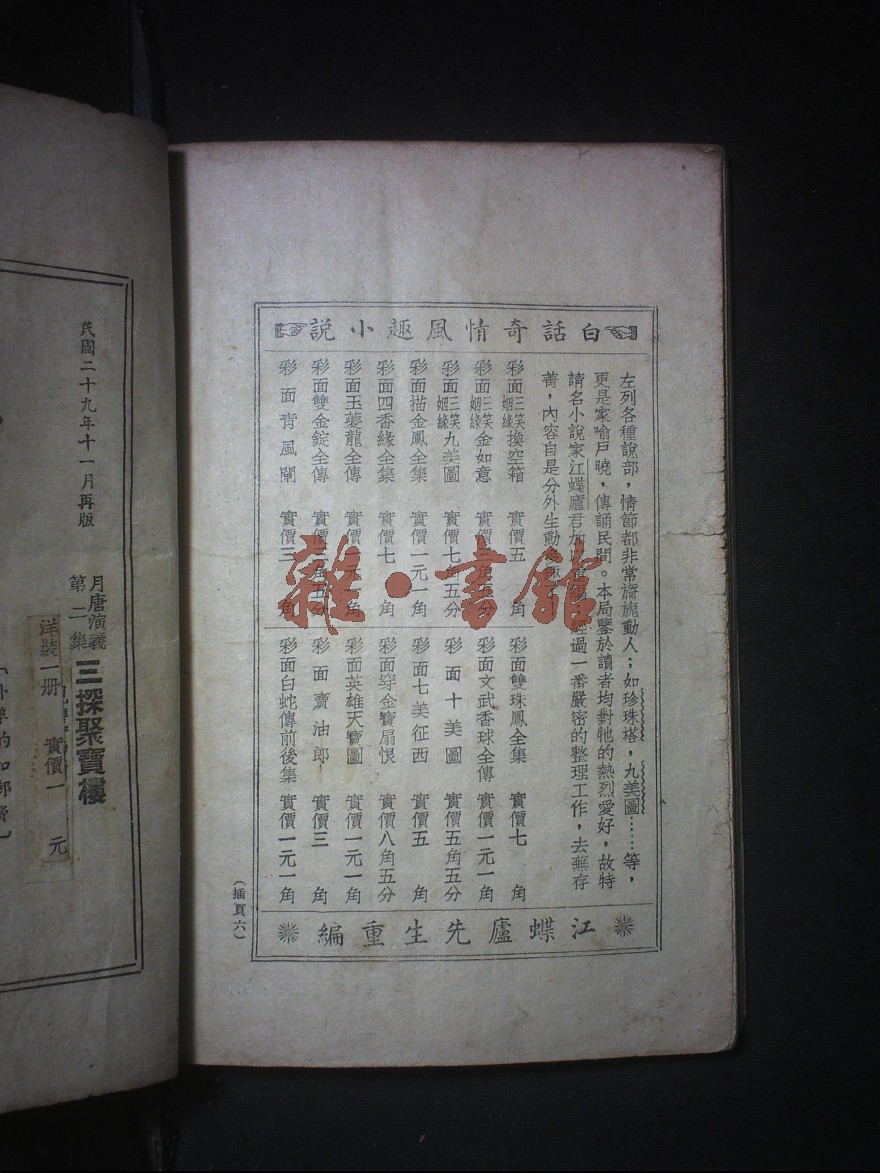 白話奇情風趣小說
左列各種說部，情節都非常旖旎動人；如珍珠塔，九美圖……等，
更是家喻戶曉，傳誦民間。本局鑒於讀者均對牠的熱烈愛好，故特
請名小說家江蝶廬君加以
經過一番嚴密的整理工作，去蕪存
菁，內容自是分外生動
彩面三笑姻緣換空箱 實價五角
彩面三笑姻緣金如意 實價 角五分
彩面三笑姻緣九美圖 實價七角五分
彩面描金鳳全集 實價一元一角
彩面四香緣全集 實價七角
彩面玉蔓龍全傳 實價一元一角
彩面雙金錠全傳 實價 角五分
彩面青風閘 實價三角
彩面雙珠鳳全集 實價七角
彩面文武香球全傳 實價一元一角
彩面十美圖 實價五角五分
彩面七美征西 實價五角
彩面穿金寶扇恨 實價八角五分
彩面英雄天寶圖 實價一元一角
彩面賣油郎 實價三角
彩面白蛇傳前後集 實價一元一角
江蝶廬先生重編
（插頁六）
雜·書館
月唐演義
第二集
三探聚寶樓
洋裝一册 實價一元
民國二十九年十一月再版